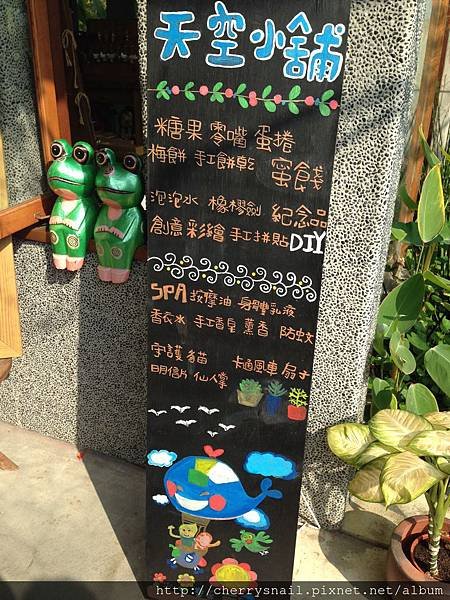 天空小舖
糖果 零嘴 蛋捲
梅餅 手工餅乾 蜜餞
泡泡水 橡樛劍 紀念品
創意彩繪 手工拼貼 DIY
SPA 按摩油 身體乳液
香衣水 手工香皂 薰香 防蚊
守護貓 卡通風車 扇子
明信片 仙人掌
http://cherrysnail.pixnet.net/album